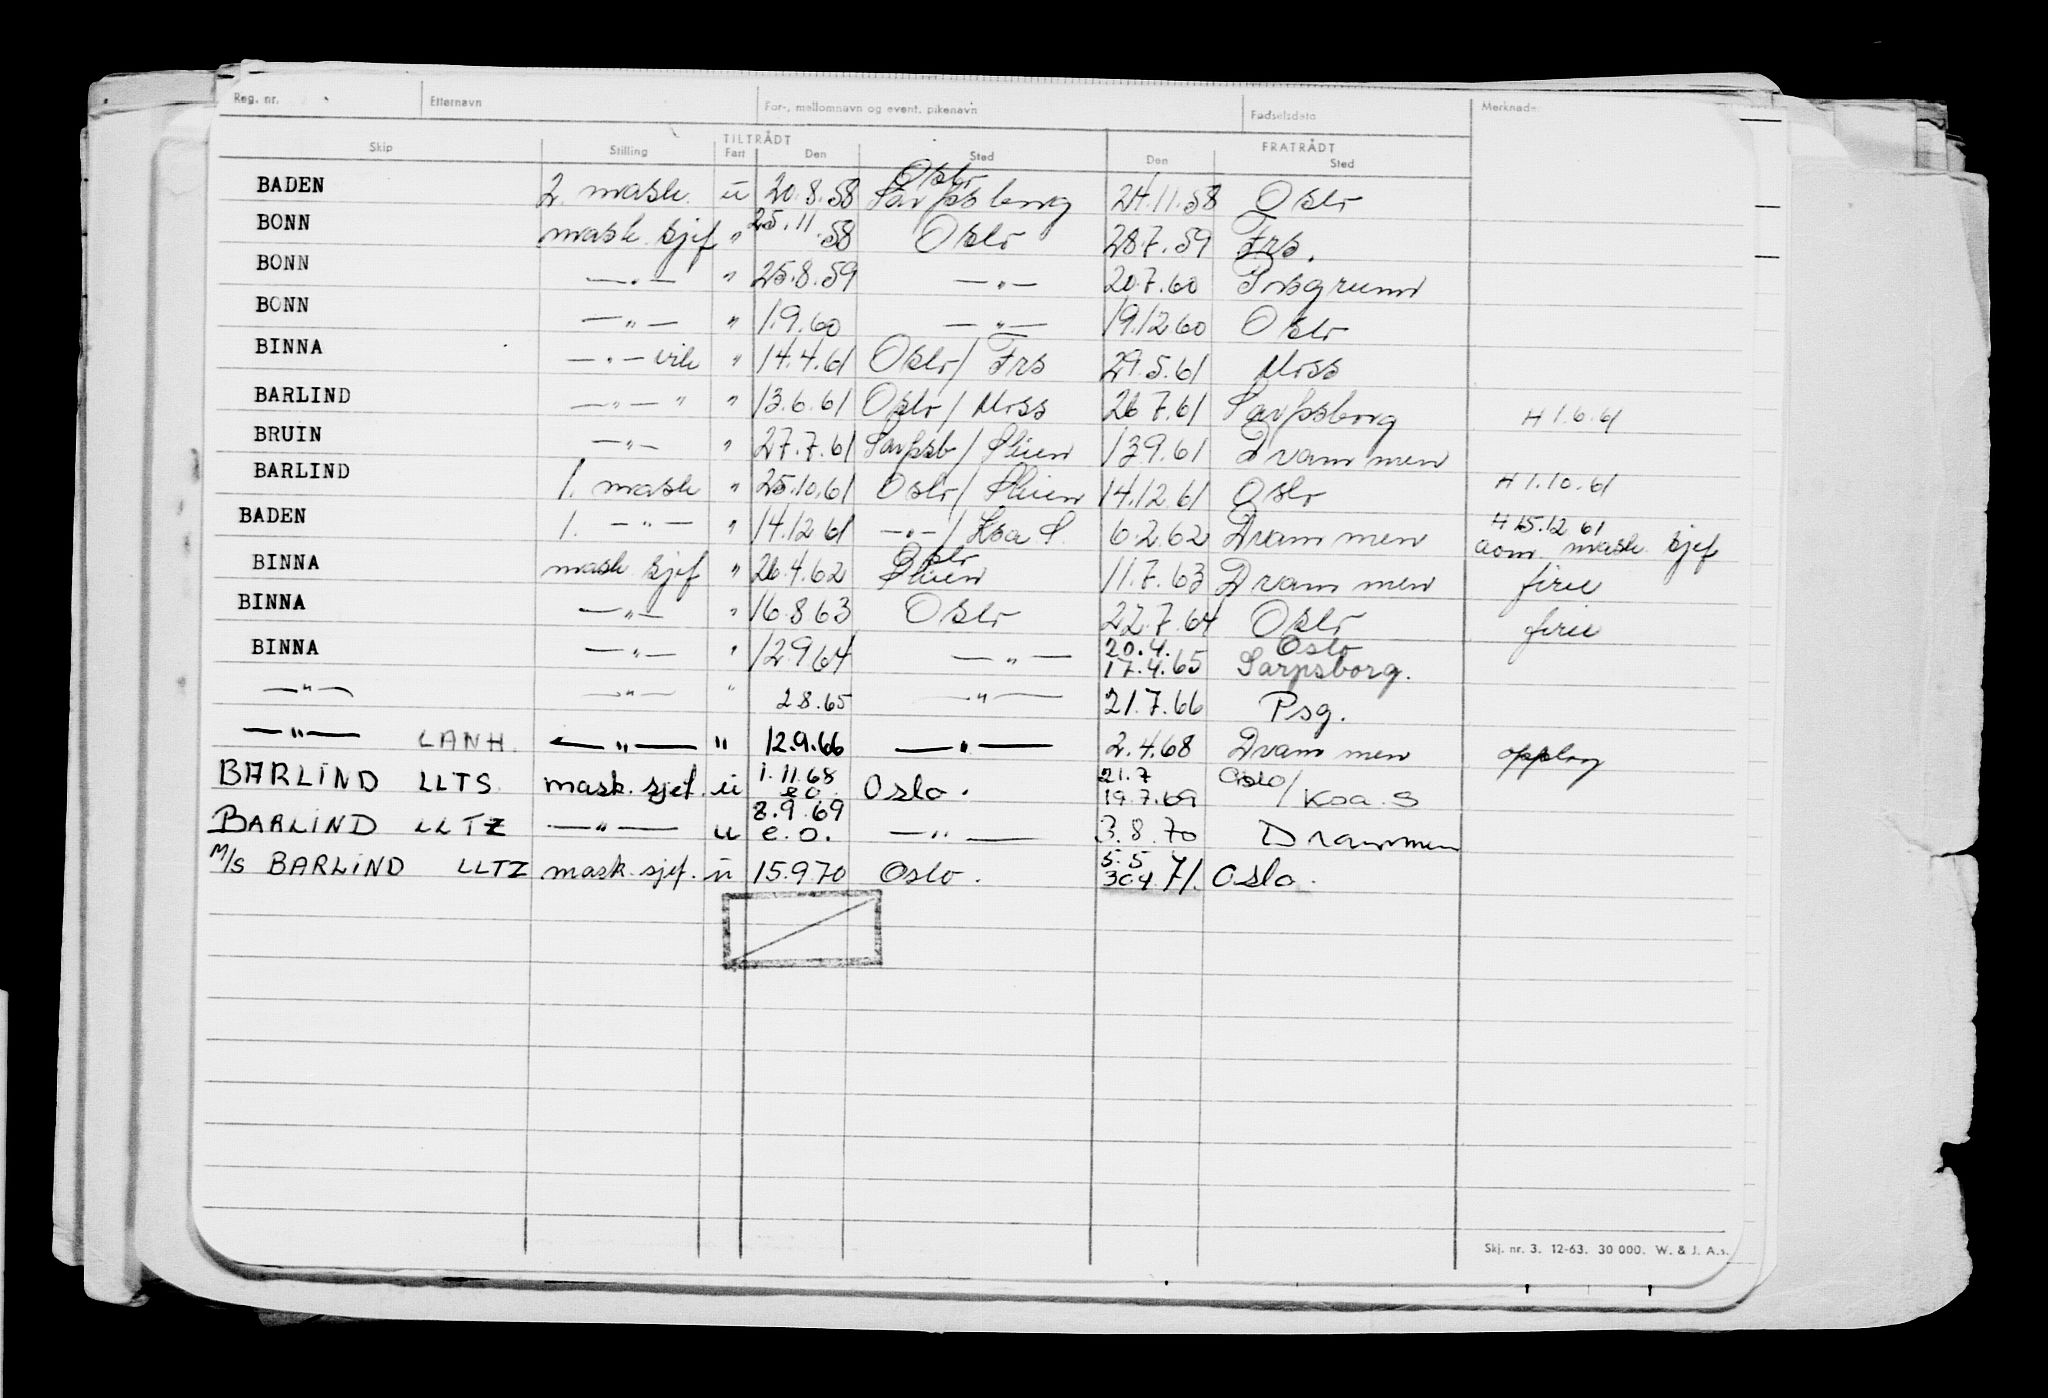 Reg. nr. Etternavn For-, mellomnavn og event. pikenavn Fødselsdato Merknad
TILTRÅDT FRATRÅDT
Skip Stilling Fart Den Sted Den Sted
Oslo
BADEN 2. mask. u 20.8.58 Sarpsborg 24.11.58 Oslo
BONN mask. sjef " 25.11.58 Oslo 28.7.59 Frs.
BONN —"— " 25.8.59 —"— 20.7.60 Porsgrunn
BONN —"— " 1.9.60 —"— 19.12.60 Oslo
BINNA —"— vik " 14.4.61 Oslo/ Frs 29.5.61 Moss
BARLIND —"— " " 13.6.61 Oslo / Moss 26.7.61 Sarpsborg H 1.6.61
BRUIN —"— " 27.7.61 Sarpsb / Skien 13.9.61 Drammen
BARLIND 1. mask " 25.10.61 Oslo/ Skien 14.12.61 Oslo H 1.10.61
BADEN 1. —"— " 14.12.61 —"— / Ksa. S. 6.2.62 Drammen H 15.12.61
som mask. sjef
Oslo
BINNA mask. sjef " 26.4.62 Skien 11.7.63 Drammen ferie
BINNA —"— " 16.8.63 Oslo 22.7.64 Oslo ferie
20.4. Oslo
BINNA —"— " 12.9.64 —"— 17.4.65 Sarpsborg.
—"— —"— " 2.8.65 —"— 21.7.66 Psg.
—"— LANH. —"— " 12.9.66 —"— 2.4.68 Drammen opplag
1.11.68 21.7 Oslo/
BARLIND LLTS mask. sjef. u e.o. Oslo. 19.7.69 Ksa. S
8.9.69
BARLIND LLTZ —"— u e.o. —"— 3.8.70 Drammen
5.5
M/S BARLIND LLTZ mask. sjef. u 15.9.70 Oslo. 30.4.71. Oslo.
Skj. nr. 3. 12-63. 30 000. W. & J. A.s.